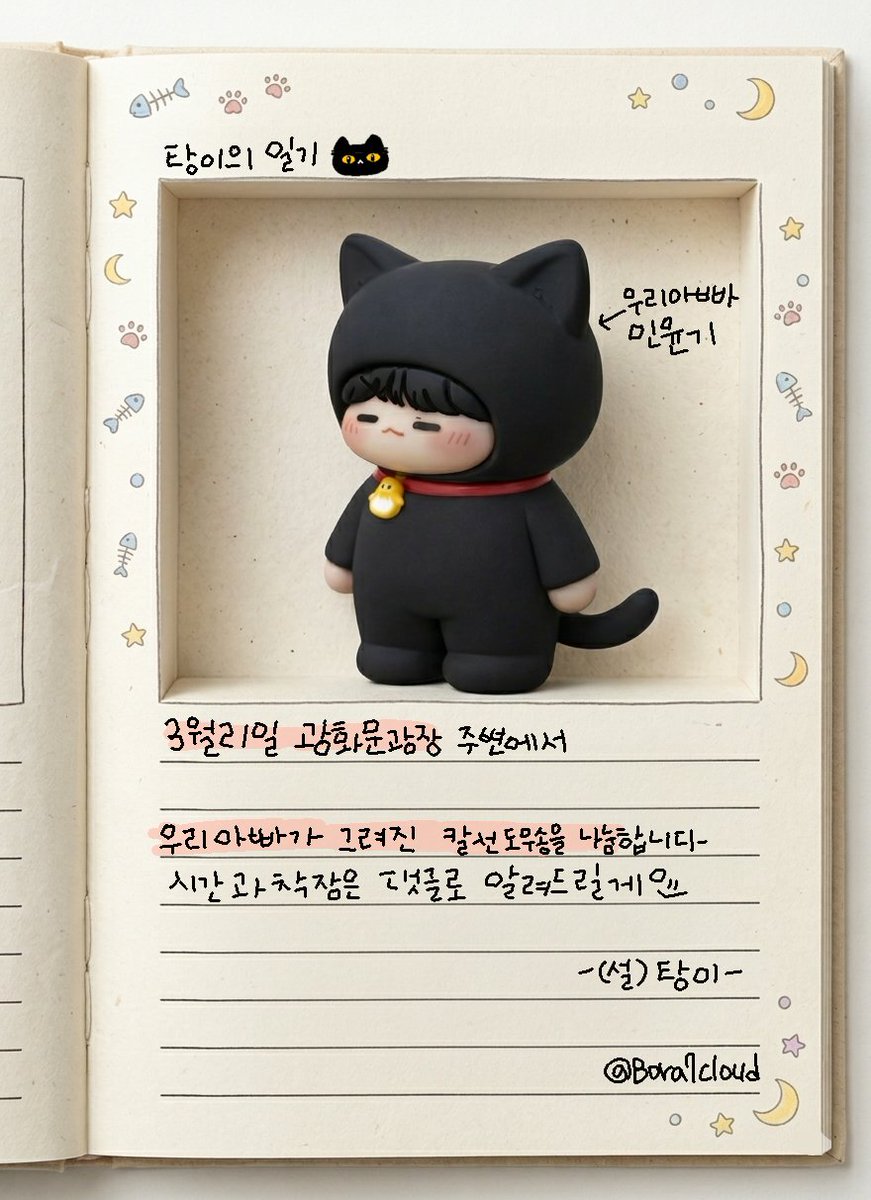 탕이의 일기
우리아빠
민윤기
3월21일 광화문광장 주변에서
우리아빠가 그려진 칼선도무송을 나눔합니다~
시간과 착장은 댓글로 알려드릴게요
-(설)탕이-
@Bora7cloud